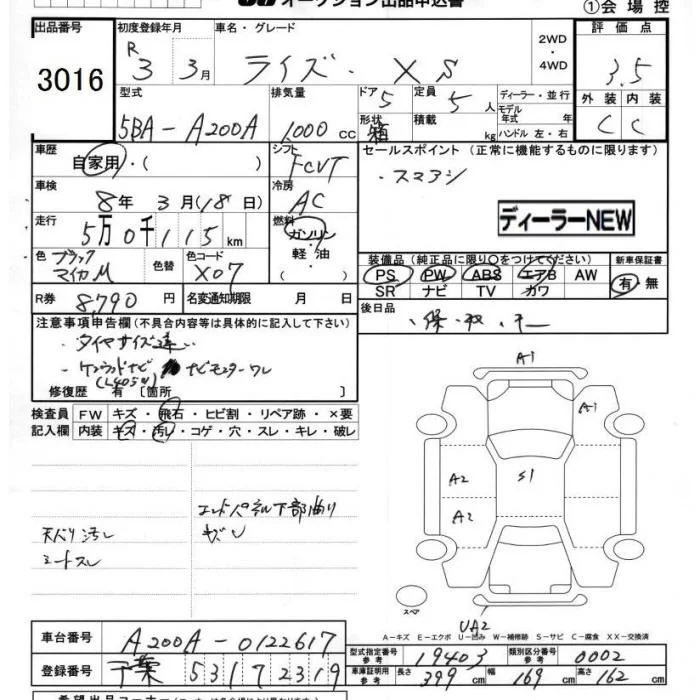 オークション出品申込書
①会場控
出品番号 3016
初度登録年月 R3 3月
車名・グレード ライズ・XS
2WD・4WD
評価点 3.5
型式 5BA-A200A
排気量 1000 cc
ドア 5
形状 箱
定員 5人
積載 kg
ディーラー・並行
モデル年式 年式
ハンドル 左・右
外装 C
内装 C
車歴 自家用・( )
シフト FCVT
セールスポイント (正常に機能するものに限ります)
・スマアシ
車検 8年3月(18日)
冷房 AC
走行 5万0千115km
燃料 ガソリン・軽油・
ディーラーNEW
色 ブラックマイカM
色替
色コード X07
装備品(純正品に限り〇をつけてください)
PS PW ABS エアB AW
SR ナビ TV カワ
新車保証書 有・無
R券 8,790円
名変通知期限 月 日
後日品
注意事項申告欄(不具合内容等は具体的に記入して下さい)
・タイヤサイズ違い
ナビモニターワレ
修復歴 有 [箇所 ]
検査員記入欄
FW キズ・飛石・ヒビ割・リペア跡・×要
内装 キズ・汚レ・コゲ・穴・スレ・キレ・破レ
エンドパネル下部曲り
キズ
天バリ汚レ
シートスレ
A1
A1
A2
S1
A2
スペア
UA2
A-キズ E-エクボ U-凹み W-補修跡 S-サビ C-腐食 XX-交換済
車台番号 A200A-0122617
型式指定番号 参考 19403
類別区分番号 参考 0002
登録番号 千葉 531 ワ 2319
車庫証明用 参考 長さ 399cm 幅 169cm 高さ 162cm